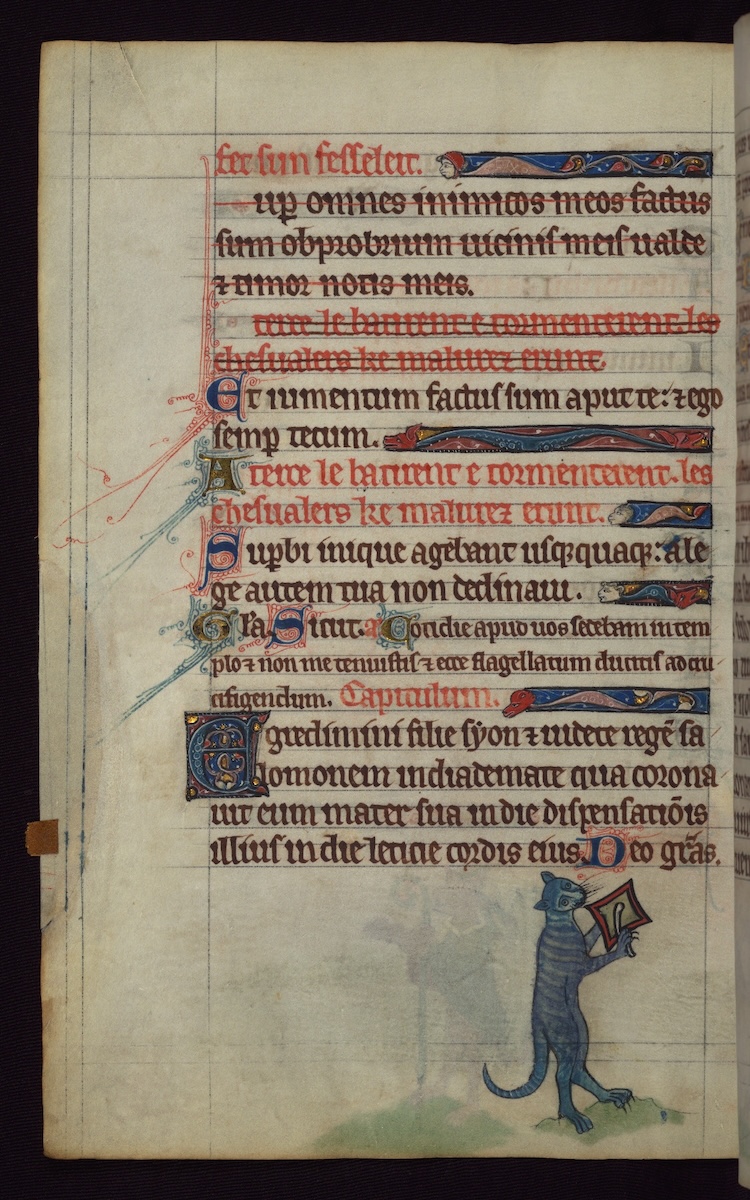 fet sun fesseleit.
up omnes inimicos meos factus
sum obprobrium uicinis meis ualde
⁊ timor notis meis.
terre le batirent e tormenterent. les
cheſualers ke malurez erunt.
Et iumentum factus sum aput te: ⁊ ego
semp tecum.
A terre le batirent e tormenterent. les
cheſualers ke malurez erunt.
Supbi inique agebant usqꝫquaqꝫ: a le
ge autem tua non declinaui.
Gła. Sicut. a͛ Cotidie apud uos sedebam in tem
plo ⁊ non me tenuistis ⁊ ecce flagellatum ducitis ad cru
cifigendum. Capitulum.
Egredimini filie syon ⁊ uidete regē sa
lomonem in diademate qua corona
uit eum mater sua in die dispensatiōis
illius in die leticie cordis eius. Deo gr̄as.